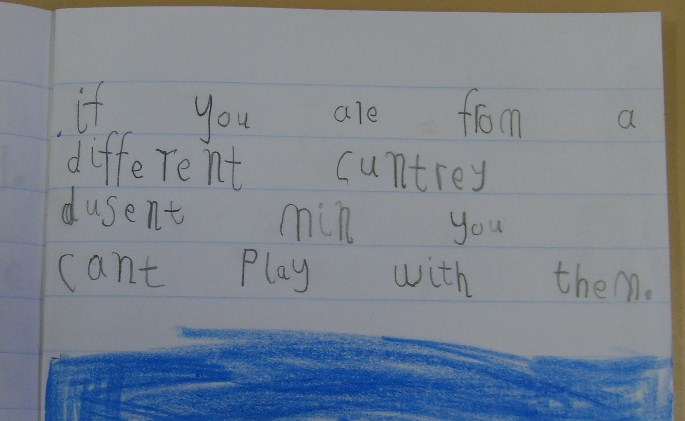 if you are from a
different cuntrey
dusent min you
cant Play with them.